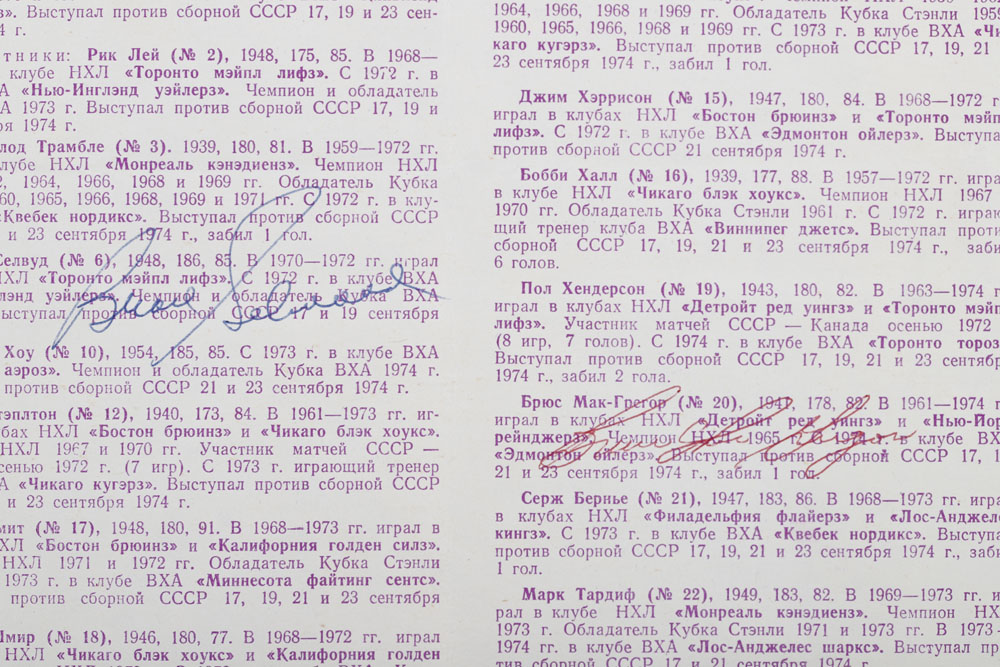 з». Выступал против сборной СССР 17, 19 и 23 сен-
4 г.
тники: Рик Лей (№ 2), 1948, 175, 85. В 1968—
клубе НХЛ «Торонто мэйпл лифз». С 1972 г. в
А «Нью-Инглэнд уэйлерз». Чемпион и обладатель
А 1973 г. Выступал против сборной СССР 17, 19 и
ря 1974 г.
лод Трамбле (№ 3). 1939, 180, 81. В 1959—1972 гг.
лубе НХЛ «Монреаль кэнэдиенз». Чемпион НХЛ
2, 1964, 1966, 1968 и 1969 гг. Обладатель Кубка
60, 1965, 1966, 1968, 1969 и 1971 гг. С 1972 г. в клу-
«Квебек нордикс». Выступал против сборной СССР
и 23 сентября 1974 г., забил 1 гол.
Селвуд (№ 6), 1948, 186, 85. В 1970—1972 гг. играл
НХЛ «Торонто мэйпл лифз». С 1972 г. в клубе ВХА
глэнд уэйлерз». Чемпион и обладатель Кубка ВХА
Выступал против сборной СССР 17 и 19 сентября
Хоу (№ 10), 1954, 185, 85. С 1973 г. в клубе ВХА
аэроз». Чемпион и обладатель Кубка ВХА 1974 г.
против сборной СССР 21 и 23 сентября 1974 г.
тэплтон (№ 12), 1940, 173, 84. В 1961—1973 гг. иг-
бах НХЛ «Бостон брюинз» и «Чикаго блэк хоукс».
НХЛ 1967 и 1970 гг. Участник матчей СССР —
сенью 1972 г. (7 игр). С 1973 г. играющий тренер
А «Чикаго кугэрз». Выступал против сборной СССР
и 23 сентября 1974 г.
мит (№ 17), 1948, 180, 91. В 1968—1973 гг. играл в
ХЛ «Бостон брюинз» и «Калифорния голден силз».
НХЛ 1971 и 1972 гг. Обладатель Кубка Стэнли
1973 г. в клубе ВХА «Миннесота файтинг сентс».
против сборной СССР 17, 19, 21 и 23 сентября
мир (№ 18), 1946, 180, 77. В 1968—1972 гг. играл
«Чикаго блэк хоукс» и «Калифорния голден
1964, 1966, 1968 и 1969 гг. Обладатель Кубка Стэнли 1959
1960, 1965, 1966, 1968 и 1969 гг. С 1973 г. в клубе ВХА «Чи
каго кугэрз». Выступал против сборной СССР 17, 19, 21
23 сентября 1974 г., забил 1 гол.
Джим Хэррисон (№ 15), 1947, 180, 84. В 1968—1972 г
играл в клубах НХЛ «Бостон брюинз» и «Торонто мэйп
лифз». С 1972 г. в клубе ВХА «Эдмонтон ойлерз». Выступа
против сборной СССР 21 сентября 1974 г.
Бобби Халл (№ 16), 1939, 177, 88. В 1957—1972 гг. игра
в клубе НХЛ «Чикаго блэк хоукс». Чемпион НХЛ 1967
1970 гг. Обладатель Кубка Стэнли 1961 г. С 1972 г. играю
щий тренер клуба ВХА «Виннипег джетс». Выступал проти
сборной СССР 17, 19, 21 и 23 сентября 1974 г., заби
6 голов.
Пол Хендерсон (№ 19), 1943, 180, 82. В 1963—1974 г
играл в клубах НХЛ «Детройт ред уингз» и «Торонто мэйп
лифз». Участник матчей СССР — Канада осенью 1972
(8 игр, 7 голов). С 1974 г. в клубе ВХА «Торонто тороз
Выступал против сборной СССР 17, 19, 21 и 23 сентябр
1974 г., забил 2 гола.
Брюс Мак-Грегор (№ 20), 1941, 178, 82. В 1961—1974 г
играл в клубах НХЛ «Детройт ред уингз» и «Нью-Йор
рейнджерз». Чемпион НХЛ 1965 г. 1974 г. в клубе ВХ
«Эдмонтон ойлерз». Выступал против сборной СССР 17, 1
21 и 23 сентября 1974 г., забил 1 гол.
Серж Бернье (№ 21), 1947, 183, 86. В 1968—1973 гг. игра
в клубах НХЛ «Филадельфия флайерз» и «Лос-Анджеле
кингз». С 1973 г. в клубе ВХА «Квебек нордикс». Выступа
против сборной СССР 17, 19, 21 и 23 сентября 1974 г., заби
1 гол.
Марк Тардиф (№ 22), 1949, 183, 82. В 1969—1973 гг. и
рал в клубе НХЛ «Монреаль кэнэдиенз». Чемпион НХ
1973 г. Обладатель Кубка Стэнли 1971 и 1973 гг. В 1973
1974 гг. в клубе ВХА «Лос-Анджелес шаркс». Выступал пр
тив сборной СССР 17 и 21 сентября 1974 г.